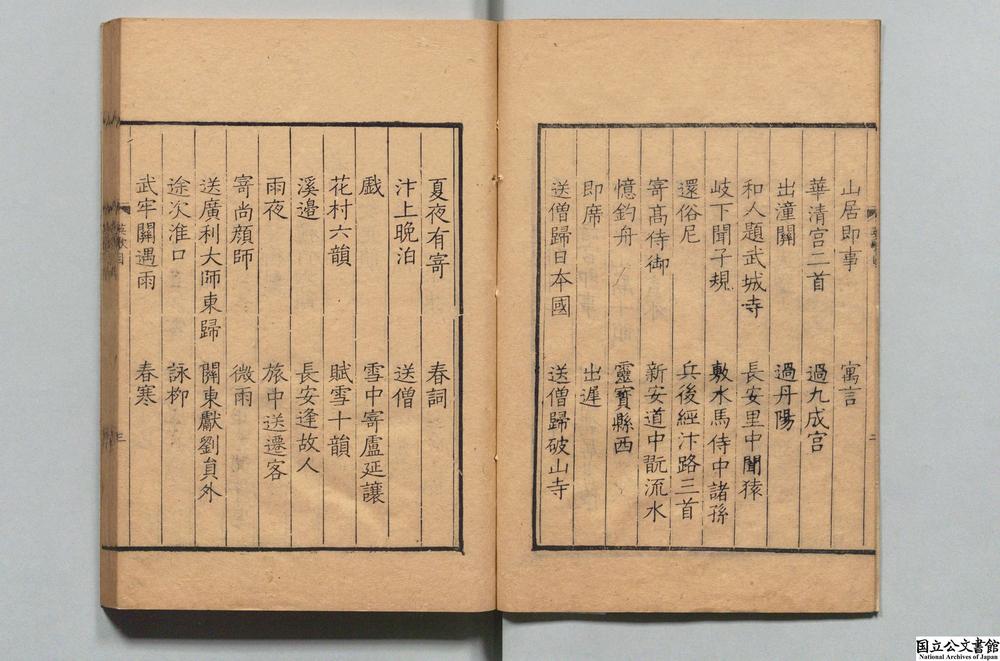 山居即事　寓言
華清宮二首　過九成宮
出潼關　過丹陽
和人題武城寺　長安里中聞猿
岐下聞子規　敷水馬侍中諸孫
還俗尼　兵後經汴路三首
寄髙侍御　新安道中翫流水
憶釣舟　靈寳縣西
即席　出遅
送僧歸日本國　送僧歸破山寺
二
夏夜有寄　春詞
汴上晚泊　送僧
戲　雪中寄盧延讓
花村六韻　賦雪十韻
溪邉　長安逢故人
雨夜　旅中送遷客
寄尚顔師　微雨
送廣利大師東歸　關東獻劉員外
途次淮口　詠柳
武牢關遇雨　春寒
三
国立公文書館
National Archives of Japan